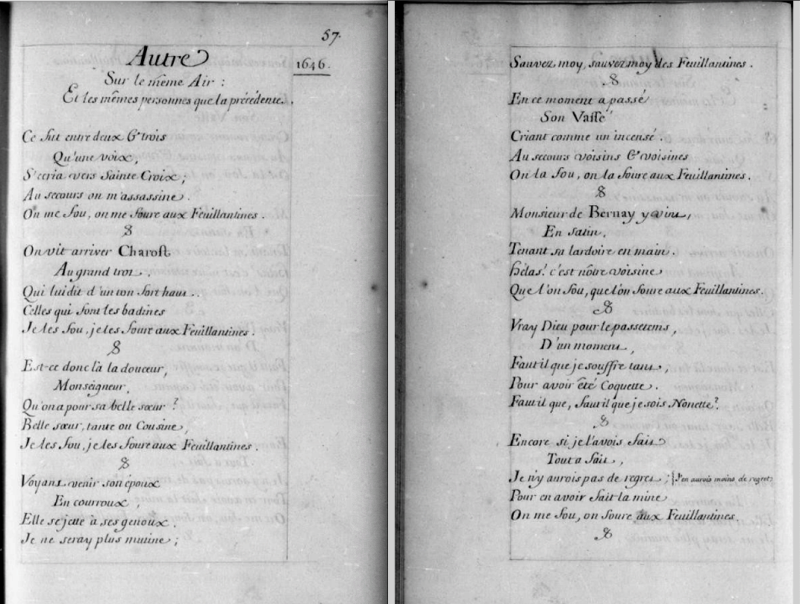 57.
Autre
1646.
Sur le même Air :
Et les mêmes personnes que la précédente.
Ce fut entre deux & trois
Qu'une voix,
S'ecria vers Sainte Croix,
Au secours on m'assassine.
On me fou, on me foure aux Feuillantines.
On vit arriver Charost
Au grand trot.
Qui lui dit d'un ton fort haut.
Celles qui font les badines
Je les fou, je les foure aux Feuillantines.
Est-ce donc là la douceur,
Monseigneur,
Qu'on a pour sa belle sœur ?
Belle sœur, tante ou Cousine,
Je les fou, je les foure aux Feuillantines.
Voyant venir son époux
En courroux,
Elle se jette à ses genoux.
Je ne seray plus mutine ;
Sauvez moy, sauvez moy des Feuillantines.
En ce moment a passé
Son Vassé
Criant comme un incensé.
Au secours voisins & voisines
On la fou, on la foure aux Feuillantines.
Monsieur de Bernay y vint,
En satin,
Tenant sa lardoire en main.
Hélas ! c'est nôtre voisine
Que l'on fou, que l'on foure aux Feuillantines.
Vray Dieu pour le passetems,
D'un moment,
Faut il que je souffre tant,
Pour avoir été Coquette.
Faut il que, faut il que je sois Nonette ?
Encore si je l'avois fait
Tout a fait,
Je n'y aurois pas de regret ; J'en aurois moins de regret
Pour en avoir fait la mine
On me fou, on foure aux Feuillantines